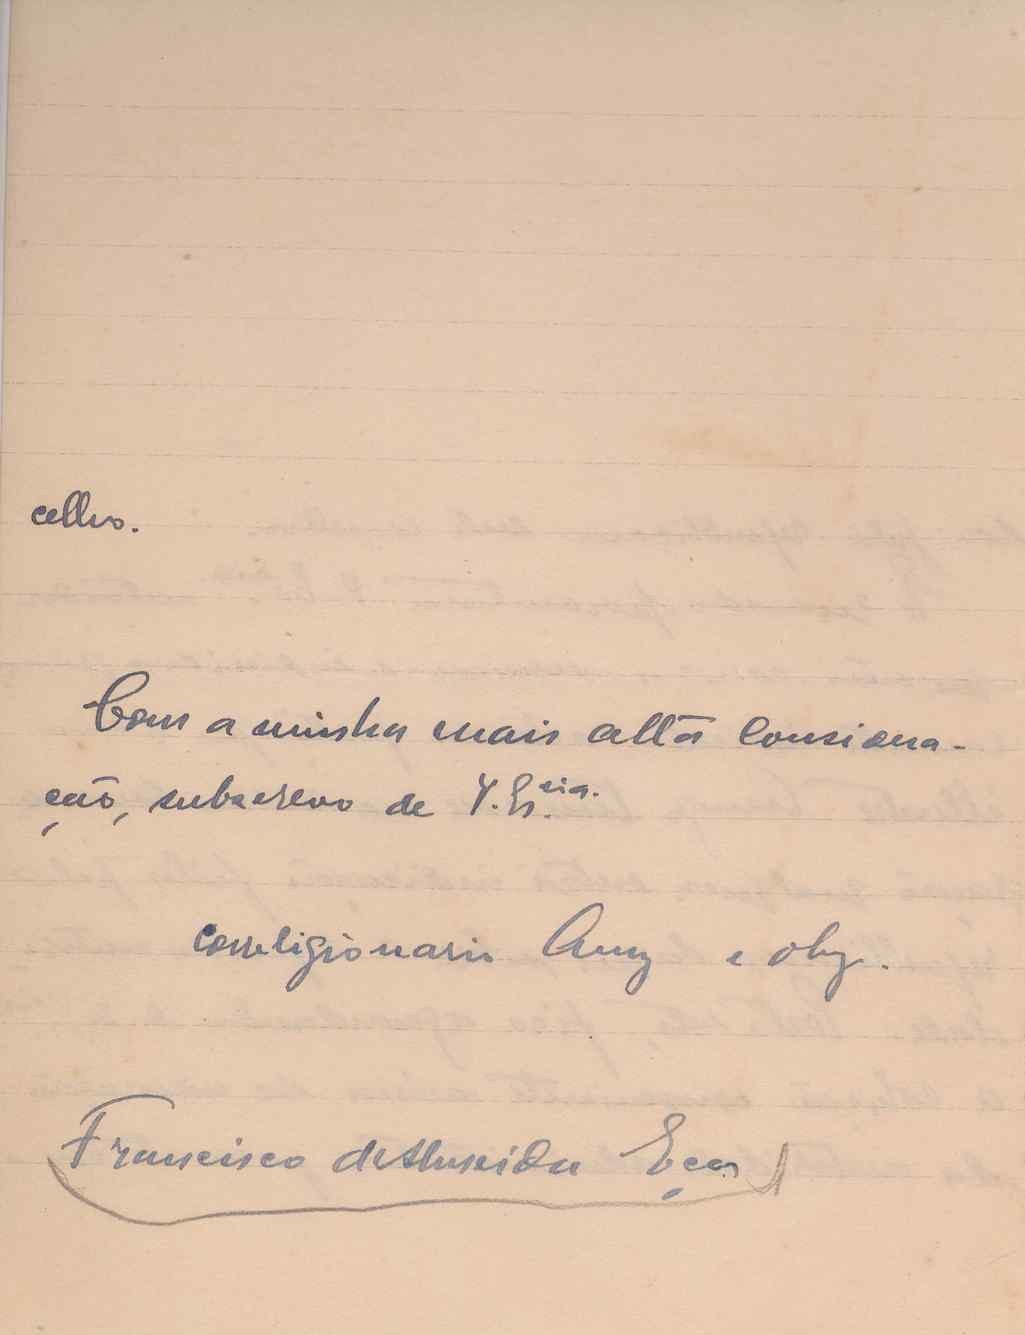 celho.
Com a minha mais alta considera-
ção, subscrevo de V. Excia.
correligionario Amg e obg.
Francisco de Almeida Eça